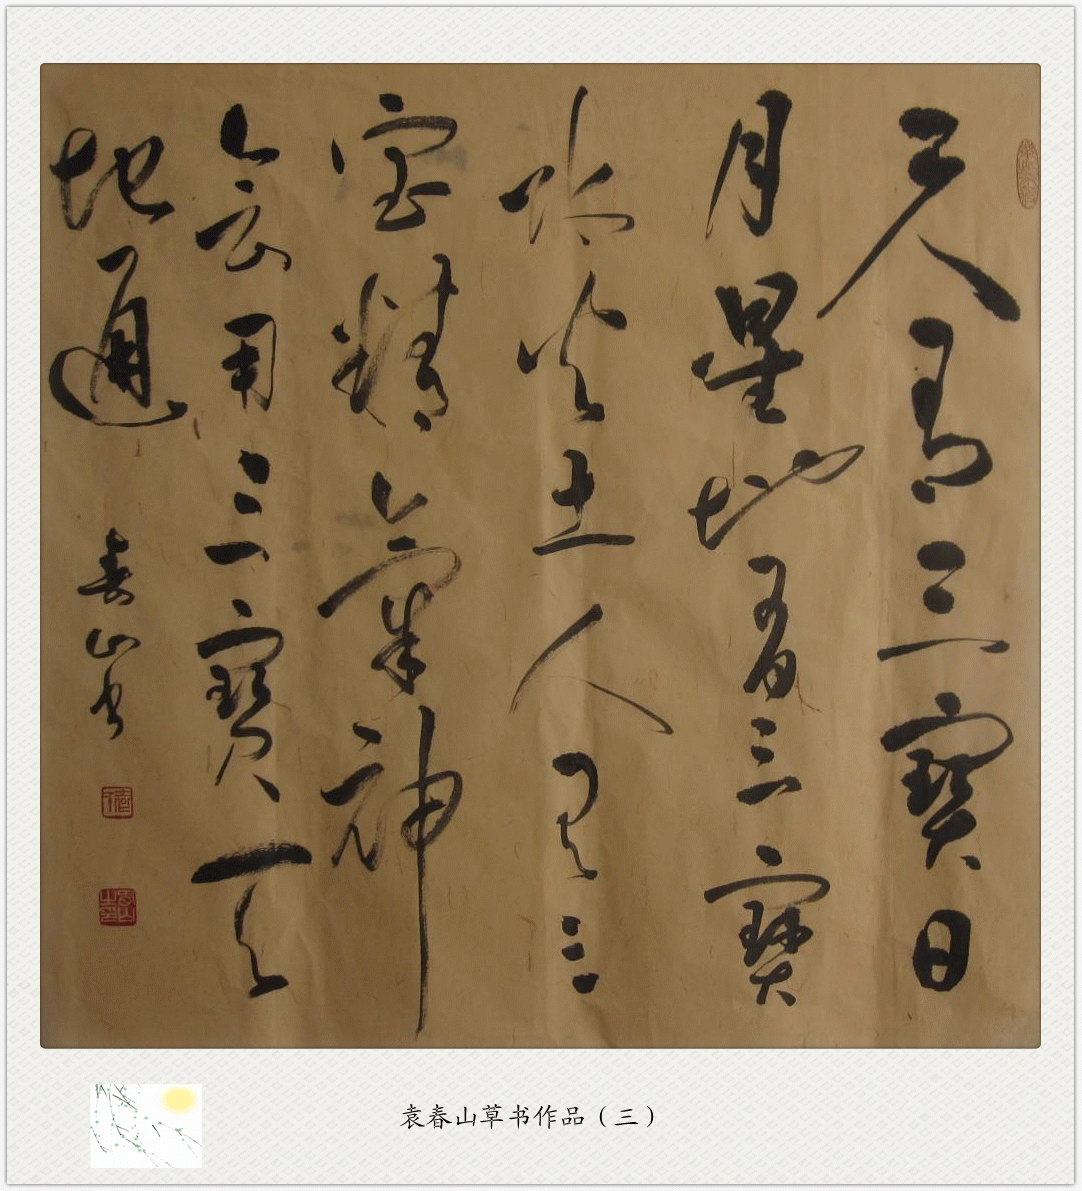 天有三寶日
月星地有三寶
水火土人有三
宝精氣神
会用三寶天
地通
春山书
袁春山草书作品（三）